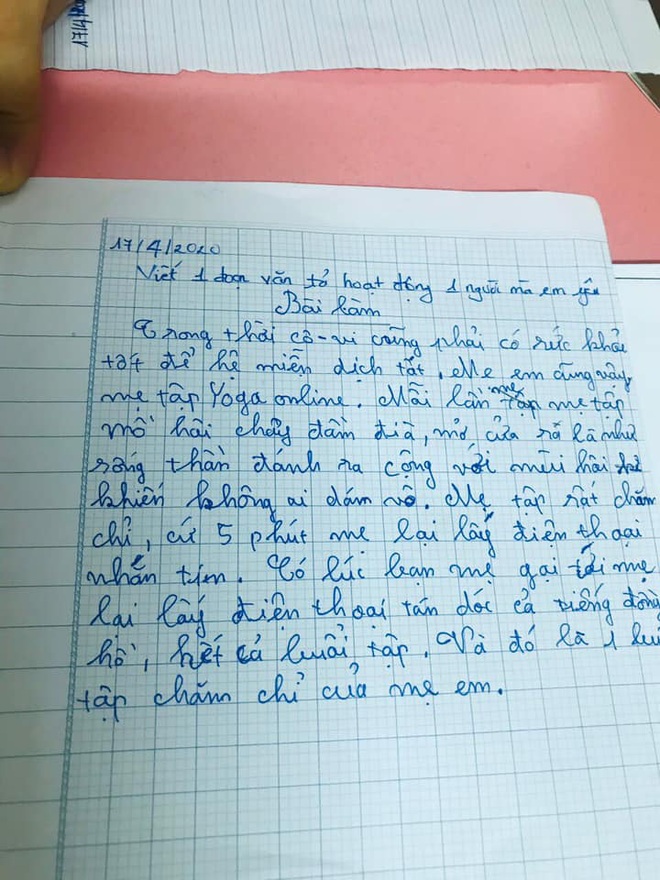 17/4/2020
Viết 1 đoạn văn tả hoạt động 1 người mà em yêu
Bài làm
Trong thời cô-vi cũng phải có sức khỏe
tốt để hệ miễn dịch tốt. Mẹ em cũng vậy,
mẹ tập Yoga online. Mỗi lần mẹ tập
mồ hôi chảy đầm đìa, mở cửa ra là như
sóng thần đánh ra cộng với mùi hôi
khiến không ai dám vô. Mẹ tập rất chăm
chỉ, cứ 5 phút mẹ lại lấy điện thoại
nhắn tin. Có lúc bạn mẹ gọi tới mẹ
lại lấy điện thoại tán dóc cả tiếng đồng
hồ, hết cả buổi tập. Và đó là 1 buổi
tập chăm chỉ của mẹ em.